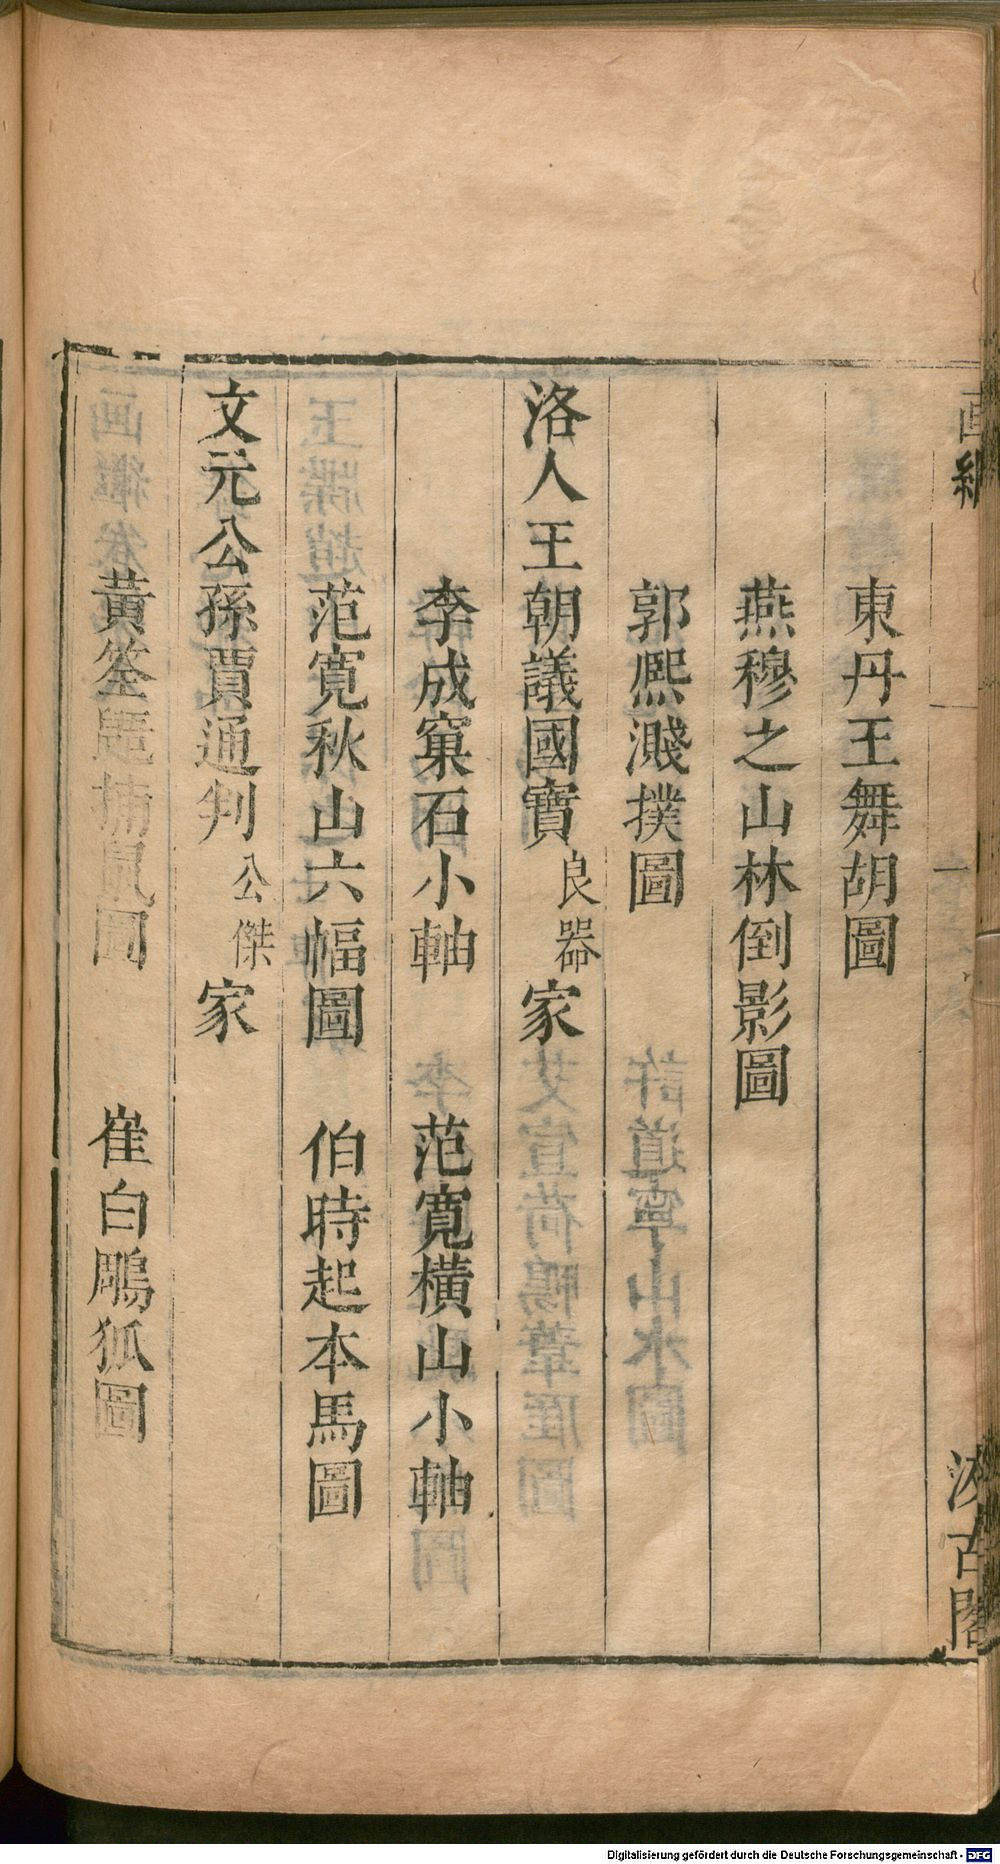 東丹王舞胡圖
燕穆之山林倒影圖
郭熙濺撲圖
洛人王朝議國寶良器家
李成窠石小軸 范寬橫山小軸
范寬秋山六幅圖 伯時起本馬圖
文元公孫賈通判公傑家
黃筌題捕鼠圖 崔白鵰狐圖
汲古閣
Digitalisierung gefördert durch die Deutsche Forschungsgemeinschaft - DFG